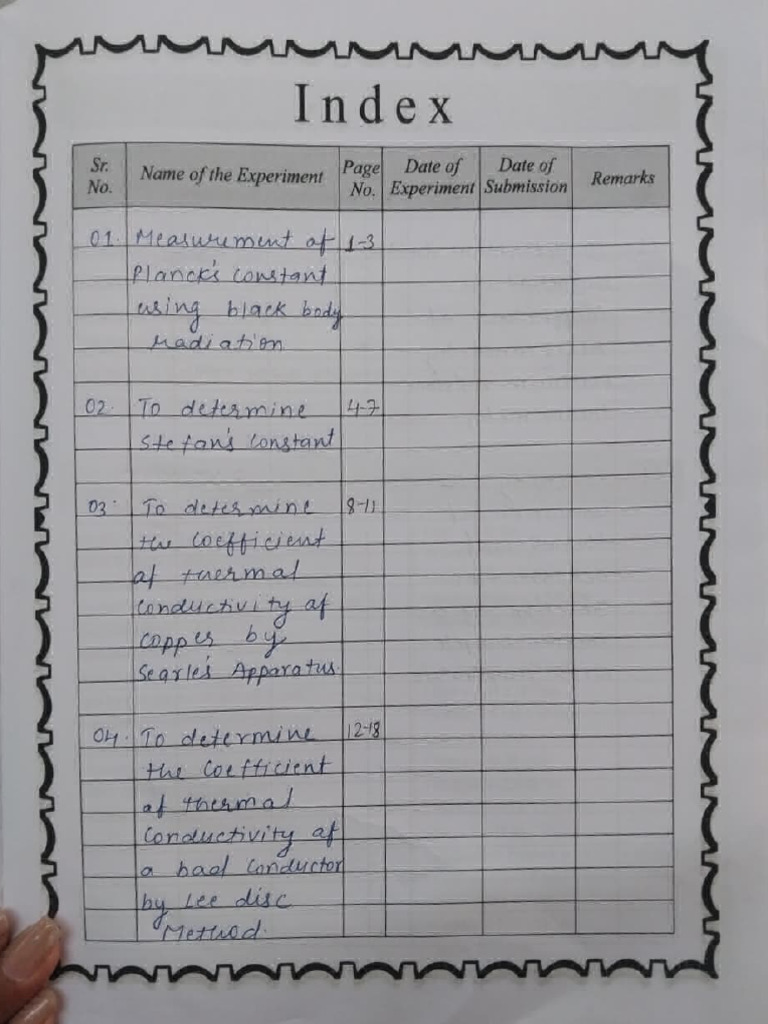 Index
Sr. No. Name of the Experiment Page No. Date of Experiment Date of Submission Remarks
01. Measurement of 1-3
Planck's Constant
using black body
radiation
02. To determine 4-7
Stefan's Constant
03. To determine 8-11
the Coefficient
of thermal
Conductivity of
Copper by
Searle's Apparatus.
04. To determine 12-18
the Coefficient
of thermal
Conductivity of
a bad Conductor
by Lee disc
Method.